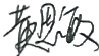 黄思敏